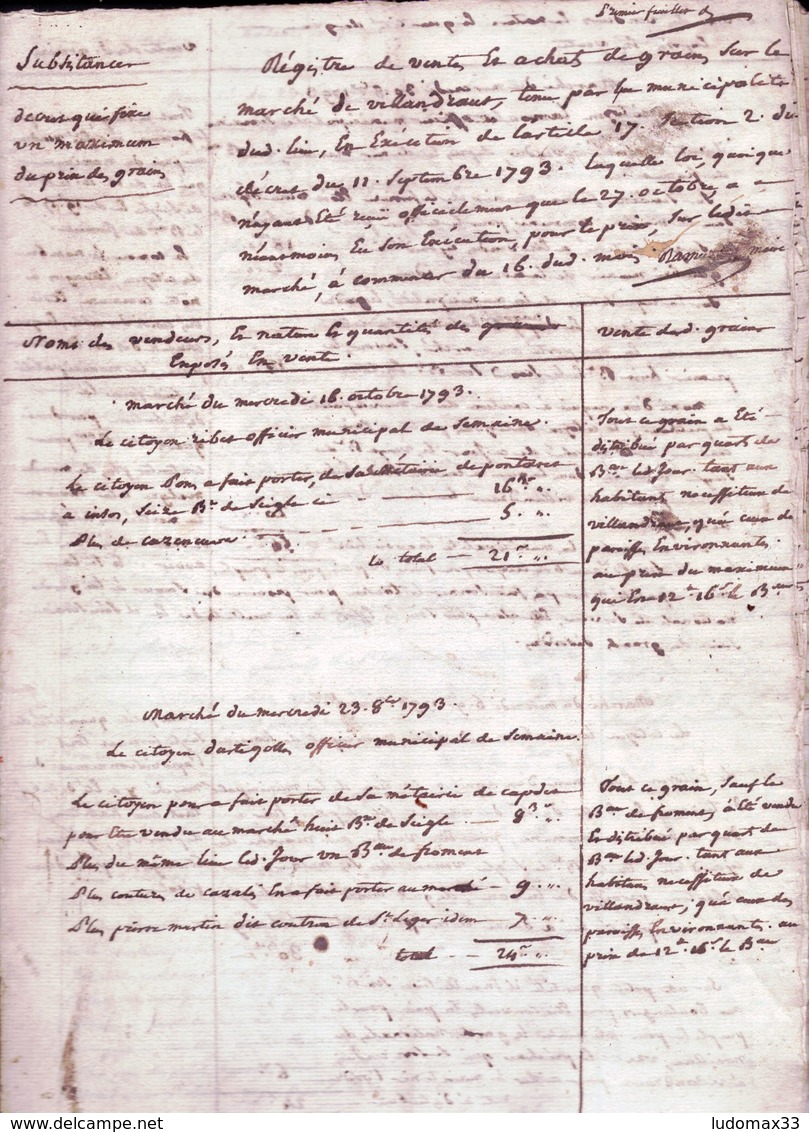 Premier feuillet
Subsistances
decret qui fixe
un maximum
du prix des grains
Régistre de ventes Et achat de grains Sur le
marché de villandraut, tenu par la municipalité
dud. lieu, En Exécution de larticle 17. Section 2. du
décret du 11. Septembre 1793. Laquelle loi, quoique
n'ayant Eté reçu officielement que le 27. octobre, a
néanmoins Eu Son Exécution, pour le prix, Sur ledit
marché, à commencer du 16. dud. mois maire
Noms des vendeurs, Et nature Et quantités des grains
Exposés En vente.
vente desd. grains
marché du mercredi 16. octobre 1793.
Le citoyen ribes officier municipal de Semaine.
Le citoyen Pons a fait porter, de Sa Métairie de
à insos, Seize Bx de Seigle ci 16
Plus de cazeneuve 5. ,,
Le total 21 ,,
Tout ce grain a Eté
distribué par quart de
Bau led. Jour. tant aux
habitans necessiteux de
villandraut, qu'à ceux des
paroisses Environnantes.
au prix du maximum
qui Est 12ll 16s le Bau
Marché du mercredi 23. 8bre 1793.
Le citoyen dartigolles officier municipal de Semaine.
Le citoyen pons a fait porter de Sa métairie de
pour Etre vendu au marché huit Bx de Seigle 8 ,,
Plus du même lieu led. Jour un Bau de froment
Plus coutures de cazalis En a fait porter au marché 9. ,,
Plus pierre martin dit de St Leger idem 7 ,,
total 24 ,,
Tout ce grain, Sauf le
Bau de froment, a été vendu
Et distribué par quart de
Bau led. Jour. tant aux
habitans necessiteux de
villandraut, qu'à ceux des
paroisses Environnantes. au
prix de 12ll 16s le Bau
ludomax33